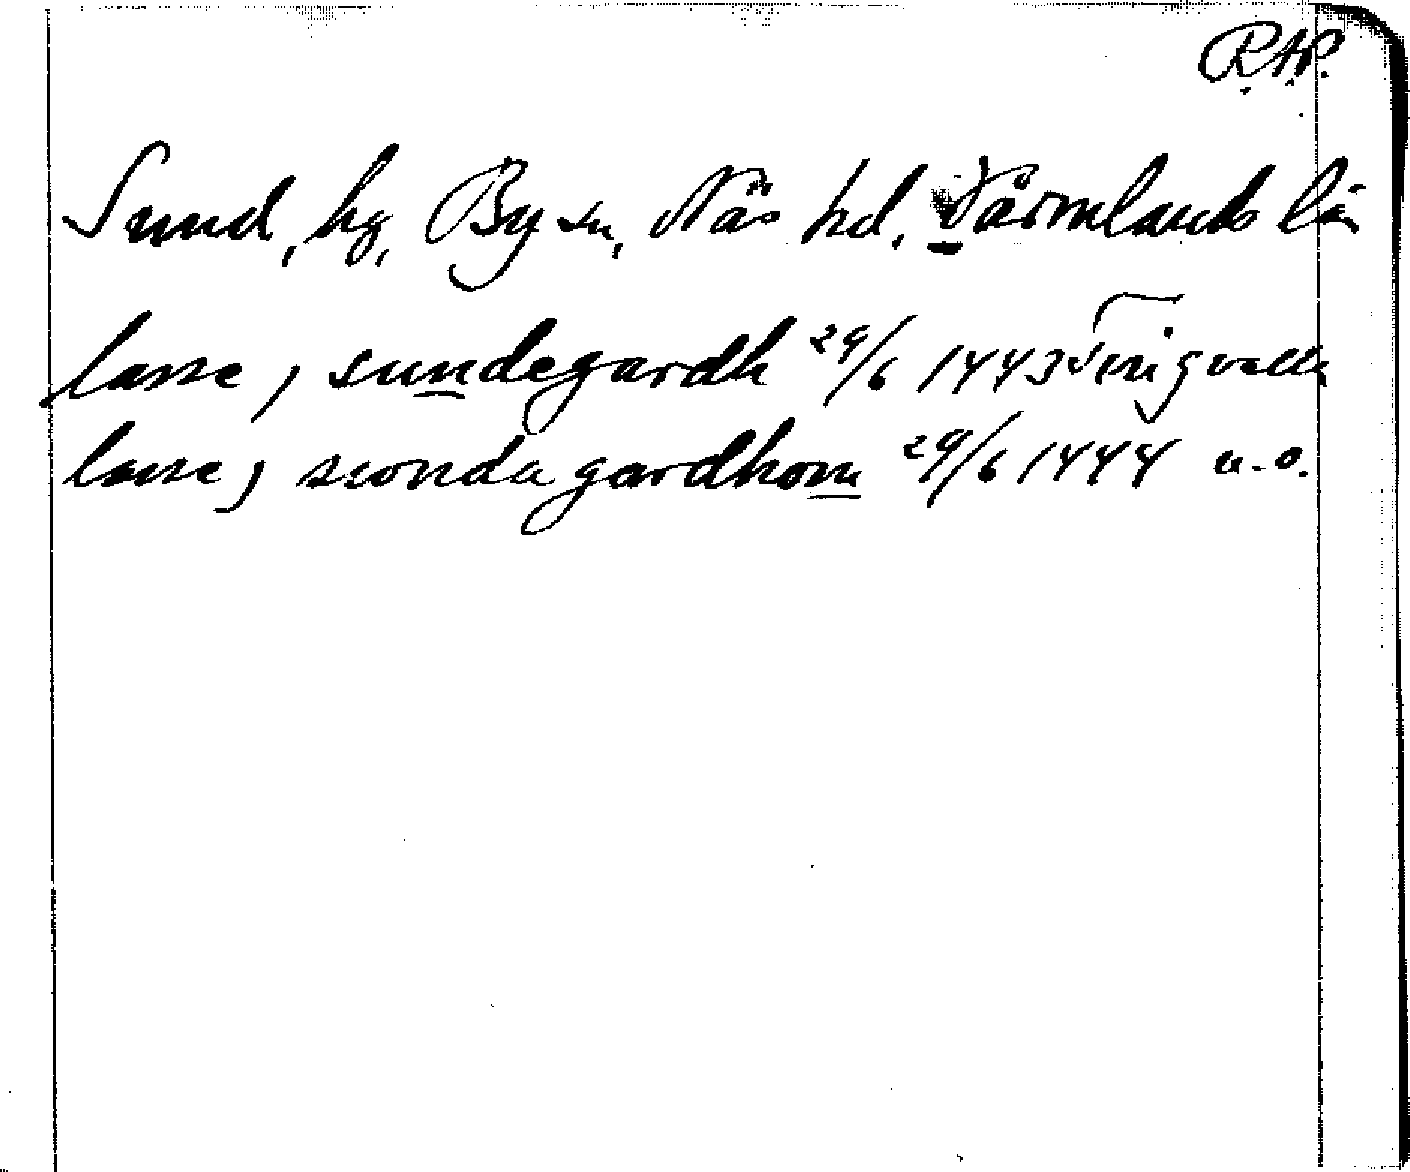 R.A.P.
Sund, hg, By sn, Näs hd, Värmlands län
lasse, j sundegardh 29/6 1443 Tingvalla
lasse j swnda gardhom 29/6 1444 u.o.